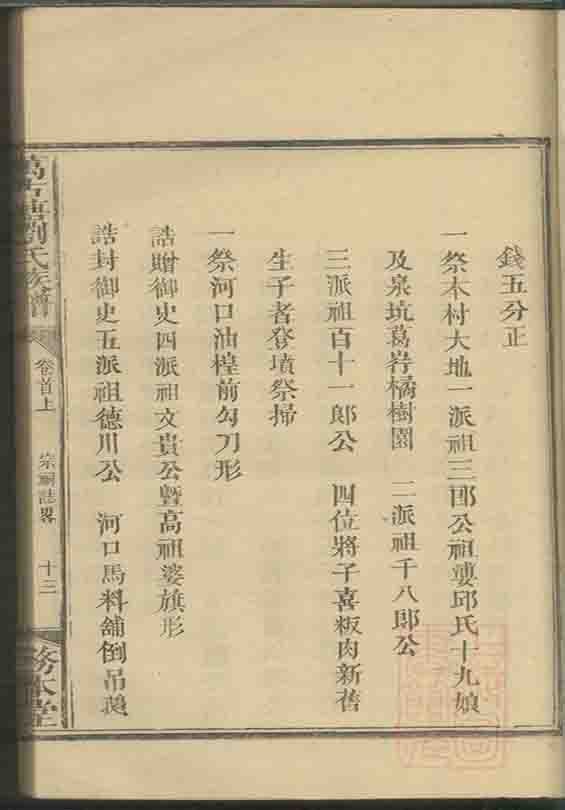 錢五分正
一祭本村大地一派祖三郎公祖婆邱氏十九娘
及泉坑葛岽橘樹園 二派祖千八郎公
三派祖百十一郎公 四位將子喜粄肉新舊
生子者登墳祭掃
一祭河口油榿前勾刀形
誥贈御史四派祖文貴公曁高祖婆旗形
誥封御史五派祖德川公 河口馬料舖倒吊
劉氏族譜
卷首上
宗祠誌畧
十三
務本堂